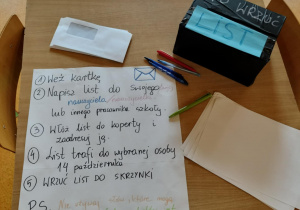 WRZUĆ
LIST
① Weź kartkę
② Napisz list do swojego
nauczyciela/
lub innego pracownika szkoły.
③ Włóż list do koperty i
zaadresuj ją
④ List trafi do wybranej osoby
14 października
⑤ WRZUĆ LIST DO SKRZYNKI
PS.